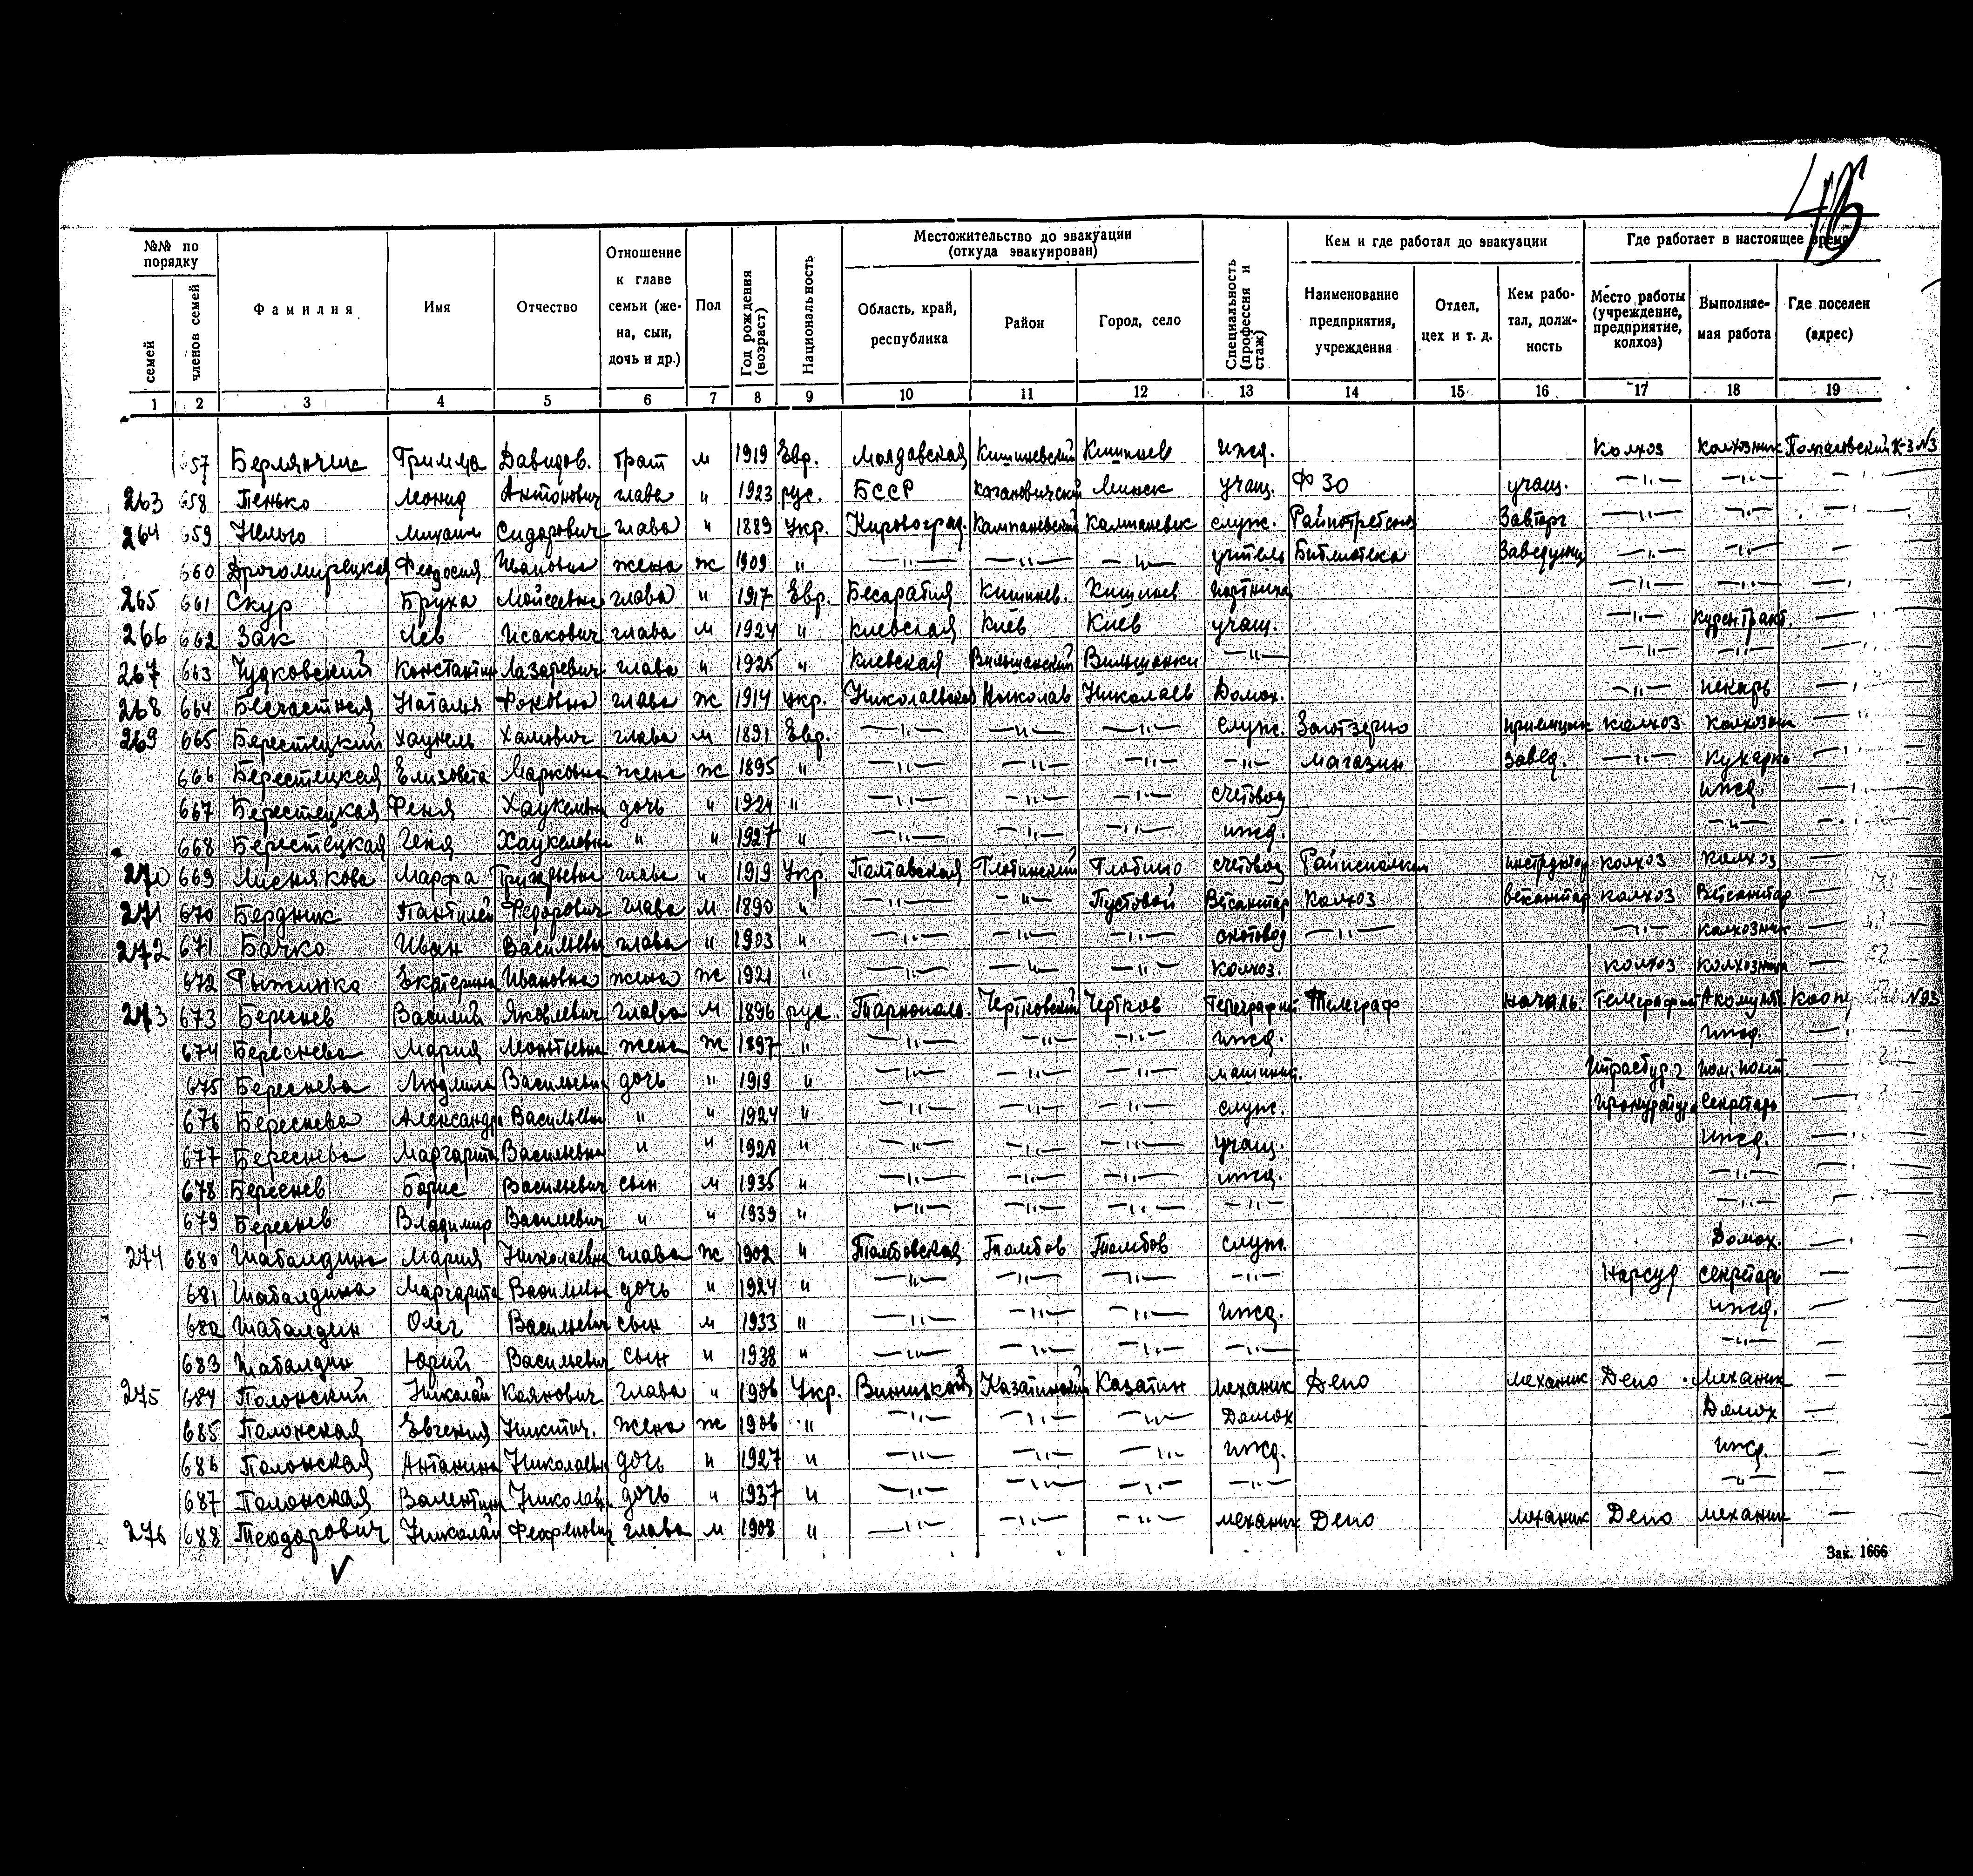 46
№№ по порядку
семей
членов семей
Фамилия
Имя
Отчество
Отношение к главе семьи (жена, сын, дочь и др.)
Пол
Год рождения (возраст)
Национальность
Местожительство до эвакуации (откуда эвакуирован)
Область, край, республика
Район
Город, село
Специальность (профессия и стаж)
Кем и где работал до эвакуации
Наименование предприятия, учреждения
Отдел, цех и т. д.
Кем работал, должность
Где работает в настоящее время
Место работы (учреждение, предприятие, колхоз)
Выполняемая работа
Где поселен (адрес)
1 2 3 4 5 6 7 8 9 10 11 12 13 14 15 16 17 18 19
657 Берлянчик Давидов. брат м 1919 Евр. Молдавская Кишиневский Кишинев ижд. Колхоз Колхозник К-З №3
263 658 Пенько Леонид Антонович глава " 1923 рус. БССР Кагановичский Минск учащ. ФЗО учащ. —"— —"— —
264 659 Михаил Сидорович глава " 1889 Укр. Кировоград. служ. Райпотребсоюз Завторг —"— —"— —
660 Драгомирецкая Феодосия Ивановна жена ж 1909 " —"— —"— —"— учитель Библиотека Заведующ —"— —"— —
265 661 Скур Бруха Мойсеевна глава " 1917 Евр. Бесарабия Кишинев. Кишинев портниха —"— —"— —
266 662 Зак Лев Исакович глава м 1924 " Киевская Киев Киев учащ. —"— —
267 663 Чудковский Константин Лазаревич глава " 1925 " Киевская Вильшанский Вильшанки —"— —"— —"— —
268 664 Бесчастная Наталья Фоковна глава ж 1914 укр. Николаевская Николаев Николаев Домох. —"— пекарь —
269 665 Берестецкий Хаукель Хаимович глава м 1891 Евр. —"— —"— —"— служ. Заготзерно приемщик колхоз колхозник —
666 Берестецкая Елизовета Марковна жена ж 1895 " —"— —"— —"— —"— магазин завед. —"— кухарка —
667 Берестецкая Феня Хаукелевна дочь " 1924 " —"— —"— —"— счетовод ижд. —
668 Берестецкая Геня Хаукелевна " " 1927 " —"— —"— —"— ижд. —"— —
270 669 Миснякова Марфа глава " 1919 Укр. Полтавская Глобинский Глобино счетовод Райисполком инструктор колхоз колхоз —
271 670 Бердник Пантилей Федорович глава м 1890 " —"— —"— Пустовой Ветсанитар Колхоз ветсанитар колхоз Ветсанитар —
272 671 Бачко Иван Васильевич глава " 1903 " —"— —"— —"— скотовод —"— —"— колхозник —
672 Рыжинко Екатерина Ивановна жена ж 1921 " —"— —"— —"— колхоз. колхоз колхозница —
273 673 Береснев Василий Яковлевич глава м 1896 рус. Тарнополь. Чертковский Чертков Телеграф началь. №93
674 Береснева Мария жена ж 1897 " —"— —"— —"— ижд. ижд. —
675 Береснева Людмила Васильевна дочь " 1919 " —"— —"— —"— машинис. —
676 Береснева Александра Васильевна " " 1924 " —"— —"— —"— служ. прокуратура секретарь —
677 Береснева Маргарита Васильевна " " 1928 " —"— —"— —"— учащ. ижд. —
678 Береснев Борис Васильевич сын м 1935 " —"— —"— —"— ижд. —"— —
679 Береснев Владимир Васильевич " " 1939 " —"— —"— —"— —"— —"— —
274 680 Шабалдина Мария Николаевна глава ж 1902 " Тамбовская Тамбов Тамбов служ. Домох. —
681 Шабалдина Маргарита Васильевна дочь " 1924 " —"— —"— —"— —"— Нарсуд секретарь —
682 Шабалдин Олег Васильевич сын м 1933 " —"— —"— —"— ижд. ижд. —
683 Шабалдин Юрий Васильевич сын " 1938 " —"— —"— —"— —"— —"— —
275 684 Полонский Николай Каянович глава " 1906 Укр. Виницкой Казатинский Казатин механик Депо механик Депо механик —
685 Полонская Евгения Никтич. жена ж 1906 " —"— —"— —"— Домох Домох —
686 Полонская Антанина Николаевна дочь " 1927 " —"— —"— —"— ижд. ижд. —
687 Полонская Валентина Николавн дочь " 1937 " —"— —"— —"— —"— —"— —
276 688 Теодорович Николай Феофенович глава м 1908 " —"— —"— —"— механик Депо механик Депо механик —
Зак. 1666